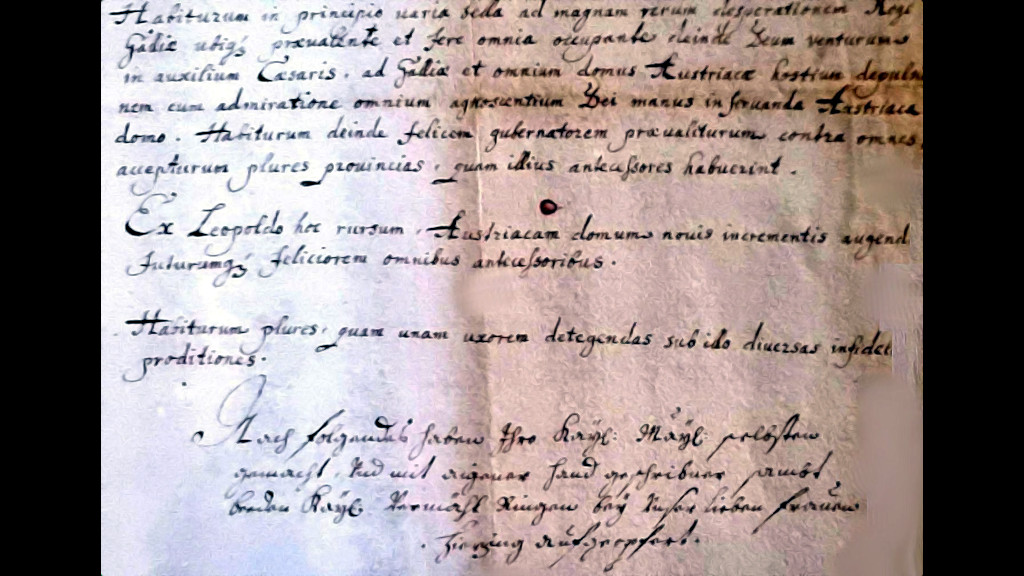 Habiturum in principio uaria bella ad magnam rerum desperationem Rege
Galliæ ubiq; præualente et fere omnia occupante deinde Deum venturum
in auxilium Cæsaris, ad Galliæ et omnium domus Austriacæ hostium depulsi
nem cum admiratione omnium agnoscentium Dei manus in seruanda Austriaca
domo. Habiturum deinde felicem gubernatorem præualiturum contra omnes,
accepturum plures prouincias, quam illius antecessores habuerint.
Ex Leopoldo hoc rursum, Austriacam domum nouis incrementis augend
futurumq; feliciorem omnibus antecessoribus.
Habiturum plures, quam unam uxorem detegendas sub illo diuersas infidel
proditiones.
Nach folgendes haben Ihro Kayl: Mäyl: selbsten
gemacht, Vnd mit aigener hand geschribner sambt
beeden Kayl. Vermähl Ringen bey Vnser lieben Frauen
aufgeopfert.